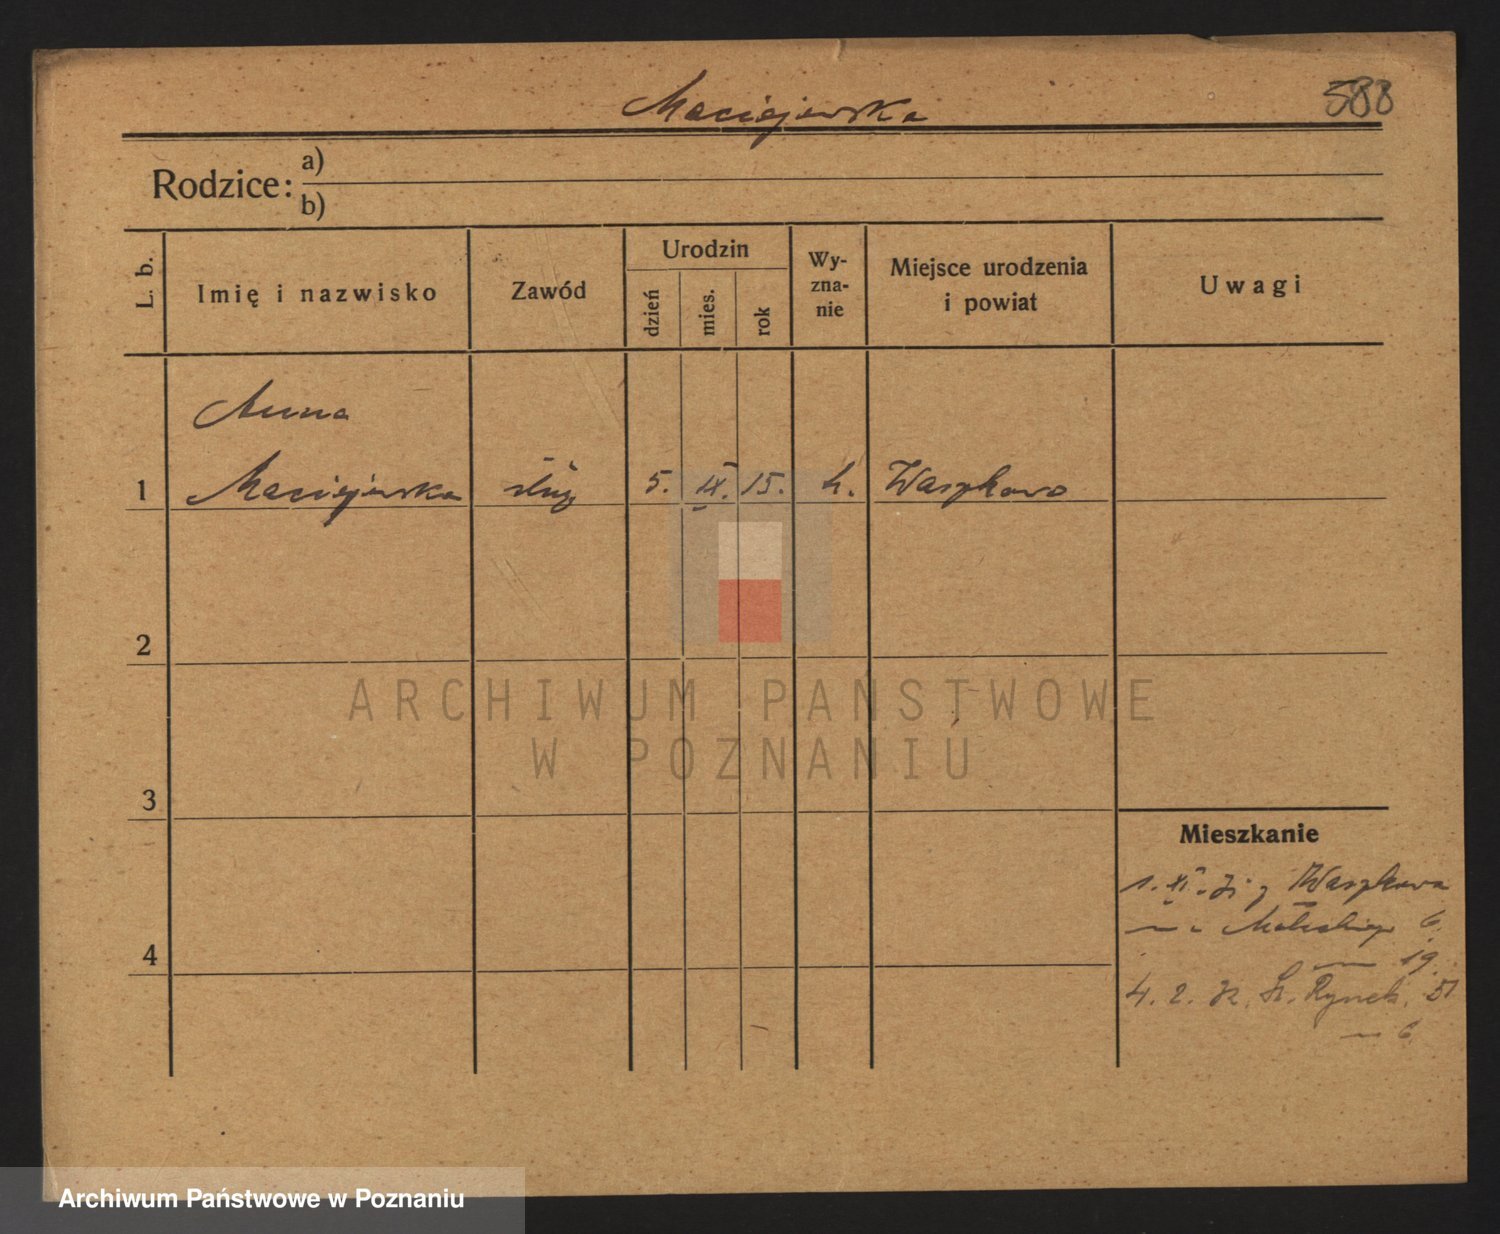 Maciejewska
588
Rodzice:
a)
b)
L. b.
Imię i nazwisko
Zawód
Urodzin
dzień
mies.
rok
Wy-
zna-
nie
Miejsce urodzenia
i powiat
Uwagi
Anna
1 Maciejewska służ 5. IX. 15. k. Waszkowo
2
ARCHIWUM PAŃSTWOWE
W POZNANIU
3
Mieszkanie
1. XI. 31 z Waszkowa
6
19.
4
4. 2. 32. St. Rynek, 51
6
Archiwum Państwowe w Poznaniu